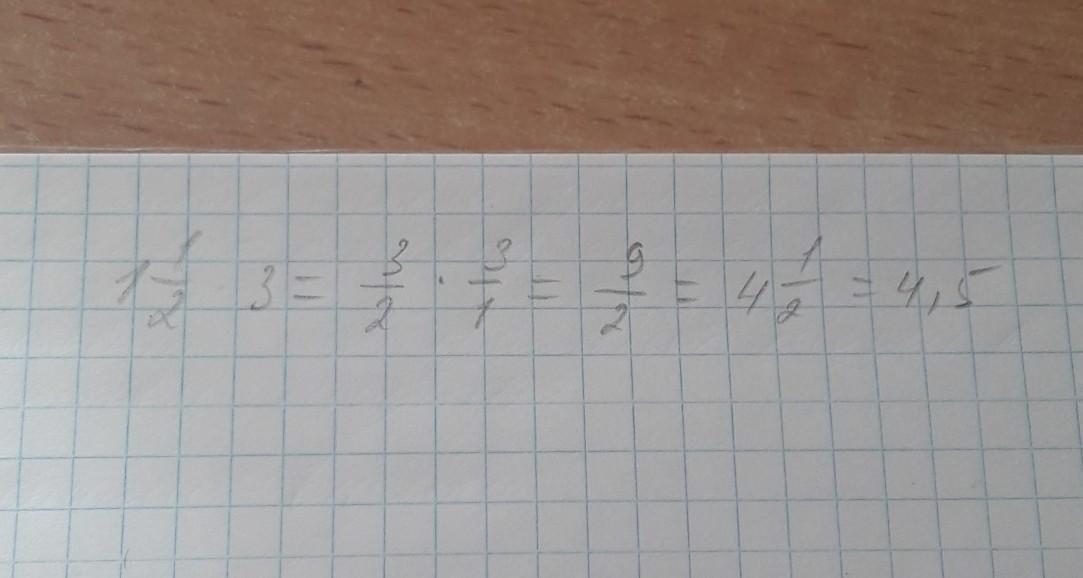 1 1/2 3 = 3/2 · 3/1 = 9/2 = 4 1/2 = 4,5